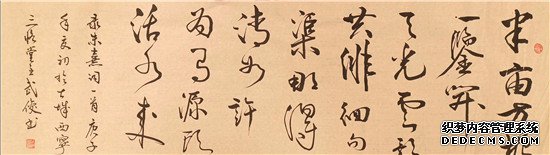 半亩方塘
一鉴开
天光云影
共徘徊问
渠那得
清如许
为有源头
活水来
录朱熹词一首庚子
年夏初于古城西宁
织梦内容管理系统
DEDECMS.COM